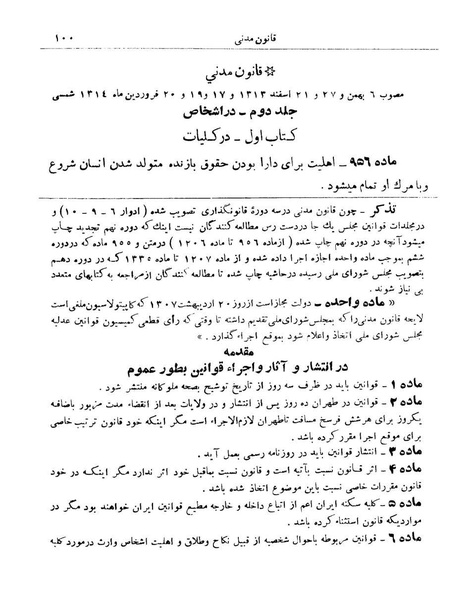 قانون مدنی ۱۰۰
قانون مدني
مصوب ۶ بهمن و ۲۷ و ۲۱ اسفند ۱۳۱۳ و ۱۷ و ۱۹ و ۲۰ فروردین ماه ۱۳۱۴ شمسی
جلد دوم ـ در اشخاص
کتاب اول ـ در کلیات
ماده ۹۵۶ ـ اهلیت برای دارا بودن حقوق بازنده متولد شدن انسان شروع
و با مرك او تمام میشود .
تذکر ـ چون قانون مدنی در سه دورهٔ قانونگذاری تصویب شده ( ادوار ۶ ـ ۹ ـ ۱۰ ) و
در مجلدات قوانین مجلس یك جا در دست رس مطالعه کنندگان نیست اینك که دوره نهم تجدید چاپ
میشود آنچه در دوره نهم چاپ شده ( از ماده ۹۵۶ تا ماده ۱۲۰۶ ) در متن و ۹۵۵ ماده که در دوره
ششم بموجب ماده واحده اجازه اجرا داده شده و از ماده ۱۲۰۷ تا ماده ۱۳۳۵ که در دوره دهم
بتصویب مجلس شورای ملی رسیده در حاشیه چاپ شده تا مطالعه کنندگان از مراجعه به کتابهای متعدد
بی نیاز شوند .
« ماده واحده ـ دولت مجاز است از روز ۲۰ اردیبهشت ۱۳۰۷ که کاپیتولاسیون ملغی است
لایحه قانون مدنی را که بمجلس شورای ملی تقدیم داشته تا وقتی که رأی قطعی کمیسیون قوانین عدلیه
مجلس شورای ملی اتخاذ و اعلام شود بموقع اجراء گذارد . »
مقدمه
در انتشار و آثار و اجراء قوانین بطور عموم
ماده ۱ ـ قوانین باید در ظرف سه روز از تاریخ توشیح بصحه ملوکانه منتشر شود .
ماده ۲ ـ قوانین در طهران ده روز پس از انتشار و در ولایات بعد از انقضاء مدت مزبور باضافه
یکروز برای هر شش فرسخ مسافت تا طهران لازم الاجراء است مگر اینکه خود قانون ترتیب خاصی
برای موقع اجرا مقرر کرده باشد .
ماده ۳ ـ انتشار قوانین باید در روزنامه رسمی بعمل آید .
ماده ۴ ـ اثر قانون نسبت بآتیه است و قانون نسبت بماقبل خود اثر ندارد مگر اینکه در خود
قانون مقررات خاصی نسبت باین موضوع اتخاذ شده باشد .
ماده ۵ ـ کلیه سکنه ایران اعم از اتباع داخله و خارجه مطیع قوانین ایران خواهند بود مگر در
مواردیکه قانون استثناء کرده باشد .
ماده ۶ ـ قوانین مربوطه باحوال شخصیه از قبیل نکاح و طلاق و اهلیت اشخاص و ارث در مورد کلیه